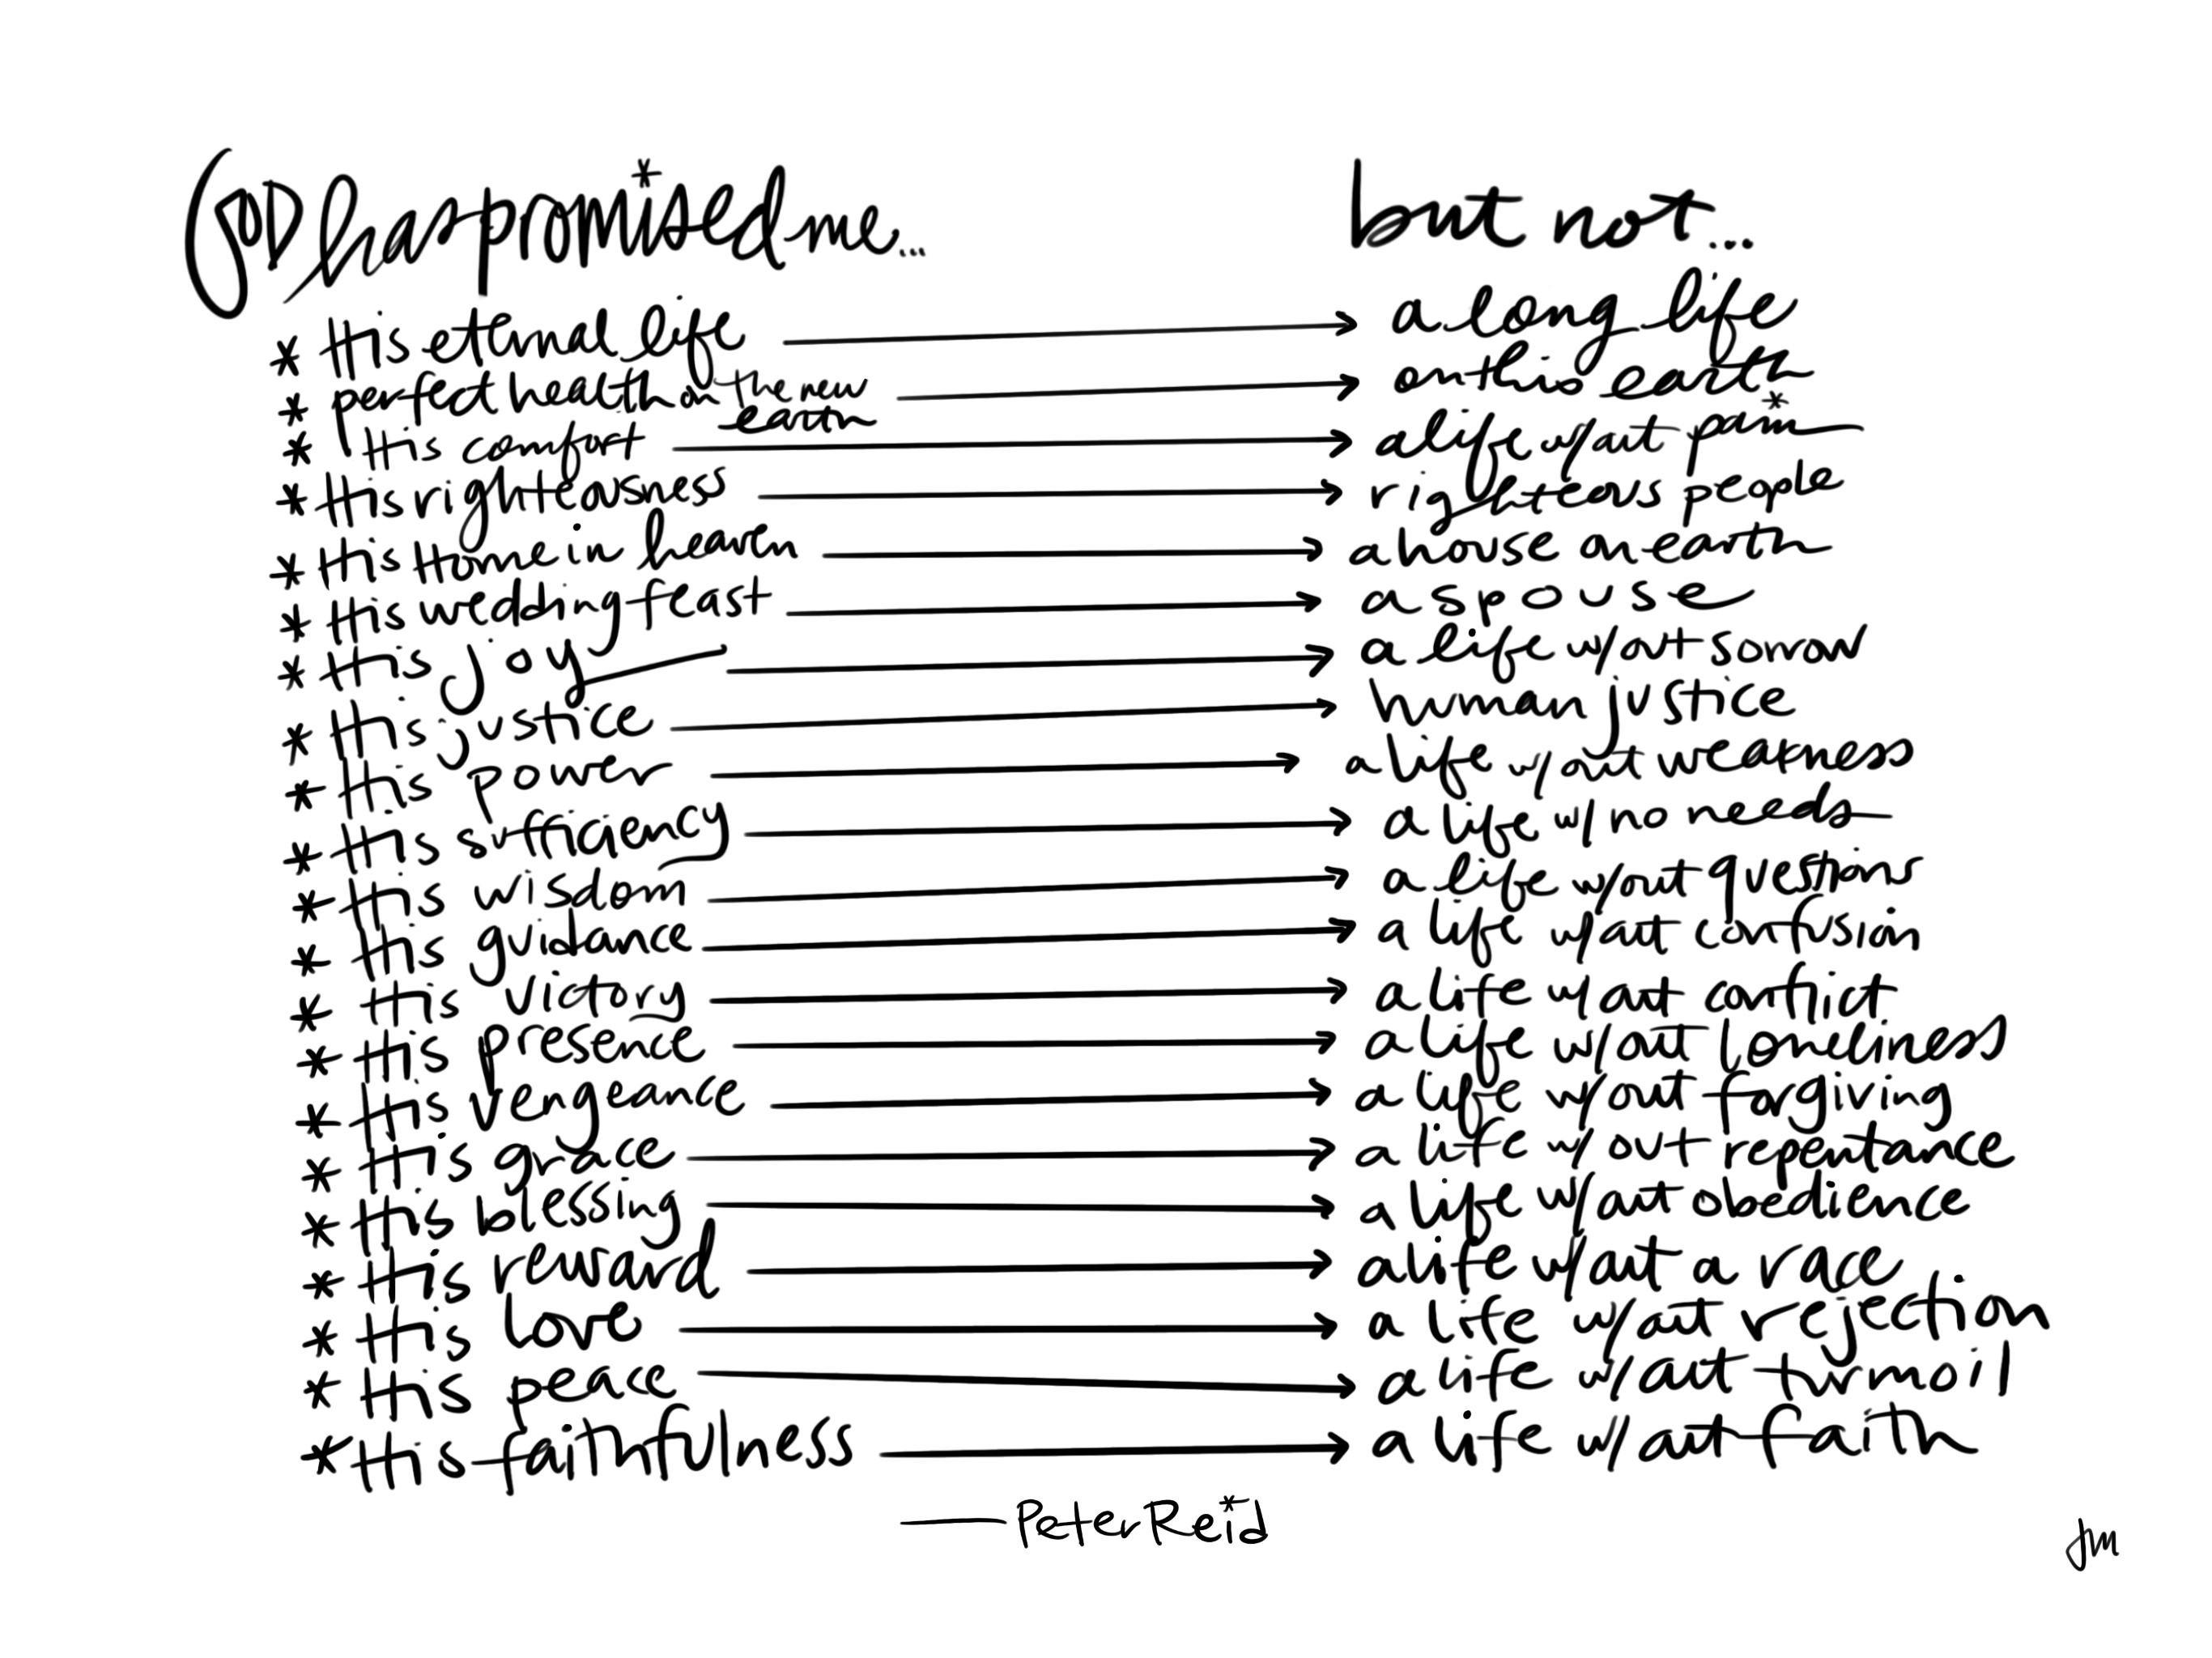 GOD has promised me... but not...
* His eternal life → a long life
* perfect health on the new earth → on this earth
* His comfort → a life w/out pain
* His righteousness → righteous people
* His Home in heaven → a house on earth
* His wedding feast → a spouse
* His joy → a life w/out sorrow
* His justice → human justice
* His power → a life w/out weakness
* His sufficiency → a life w/ no needs
* His wisdom → a life w/out questions
* His guidance → a life w/out confusion
* His victory → a life w/out conflict
* His presence → a life w/out loneliness
* His vengeance → a life w/out forgiving
* His grace → a life w/out repentance
* His blessing → a life w/out obedience
* His reward → a life w/out a race
* His love → a life w/out rejection
* His peace → a life w/out turmoil
* His faithfulness → a life w/out faith
— Peter Reid
JM